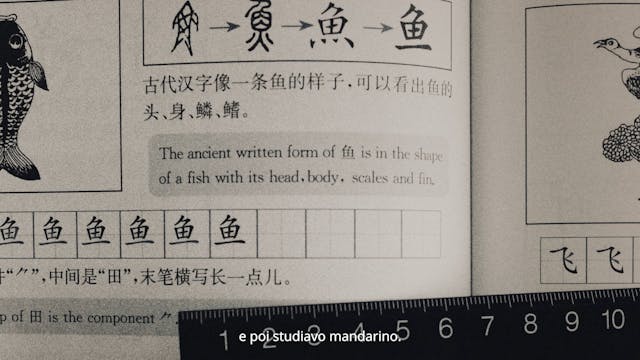 魚 → 鱼
古代汉字像一条鱼的样子,可以看出鱼的
头、身、鳞、鳍。
The ancient written form of 鱼 is in the shape
of a fish with its head, body, scales and fin.
鱼 鱼 鱼 鱼 鱼 鱼
“⺈”,中间是“田”,末笔横写长一点儿。
p of 田 is the component ⺈.
飞 飞
1 2 3 4 5 6 7 8 9 10
e poi studiavo mandarino.